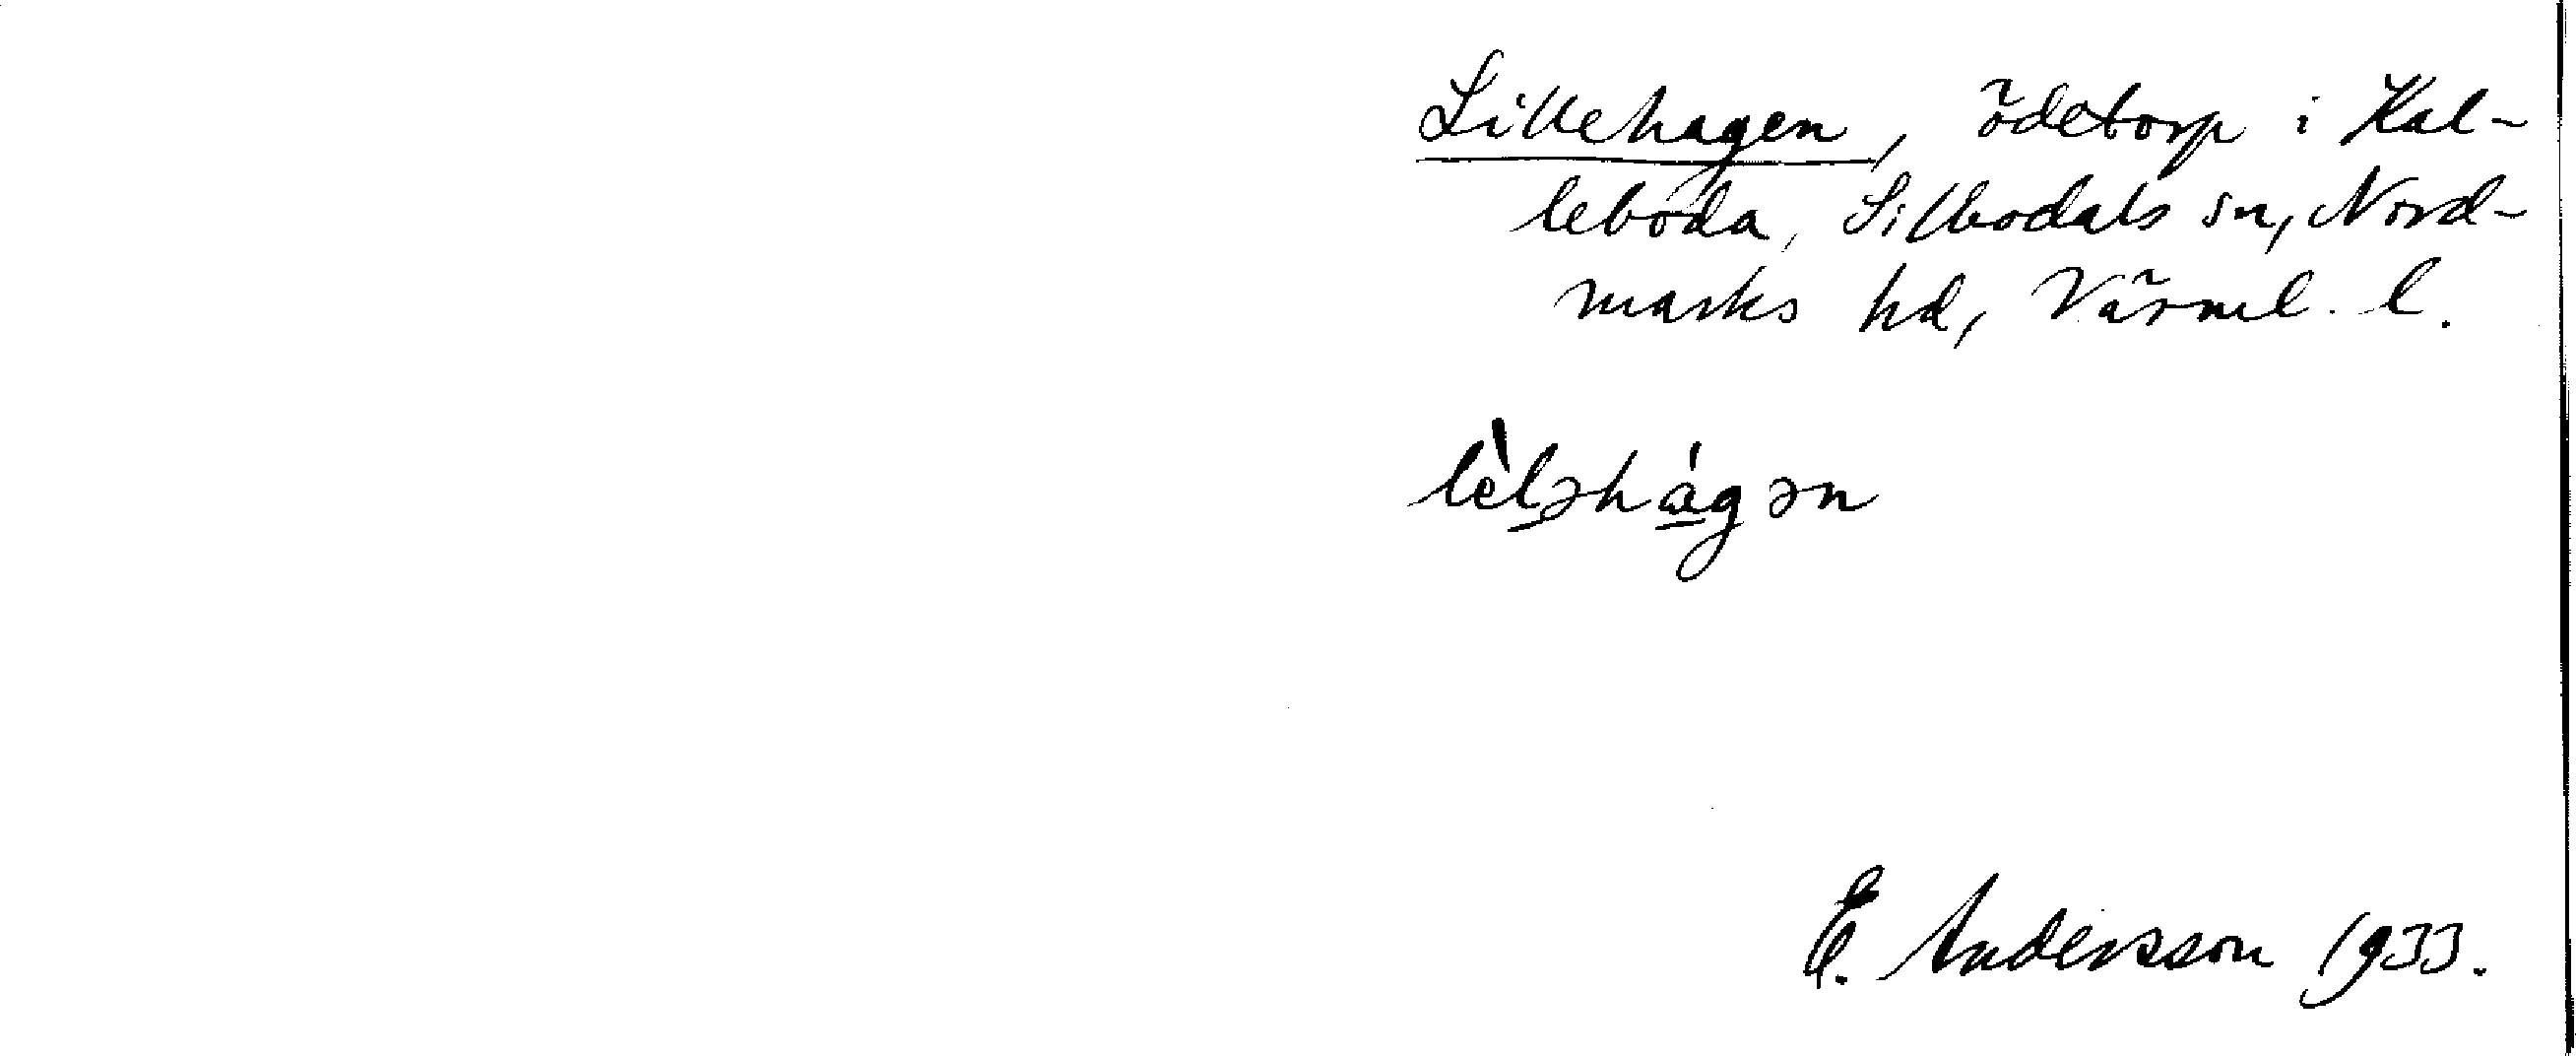 Lillehagen, ödetorp i Kal-
leboda, Silbodals sn, Nord-
marks hd, Värml. l.
lèl̠əhá̠gən
E. Andersson 1933.